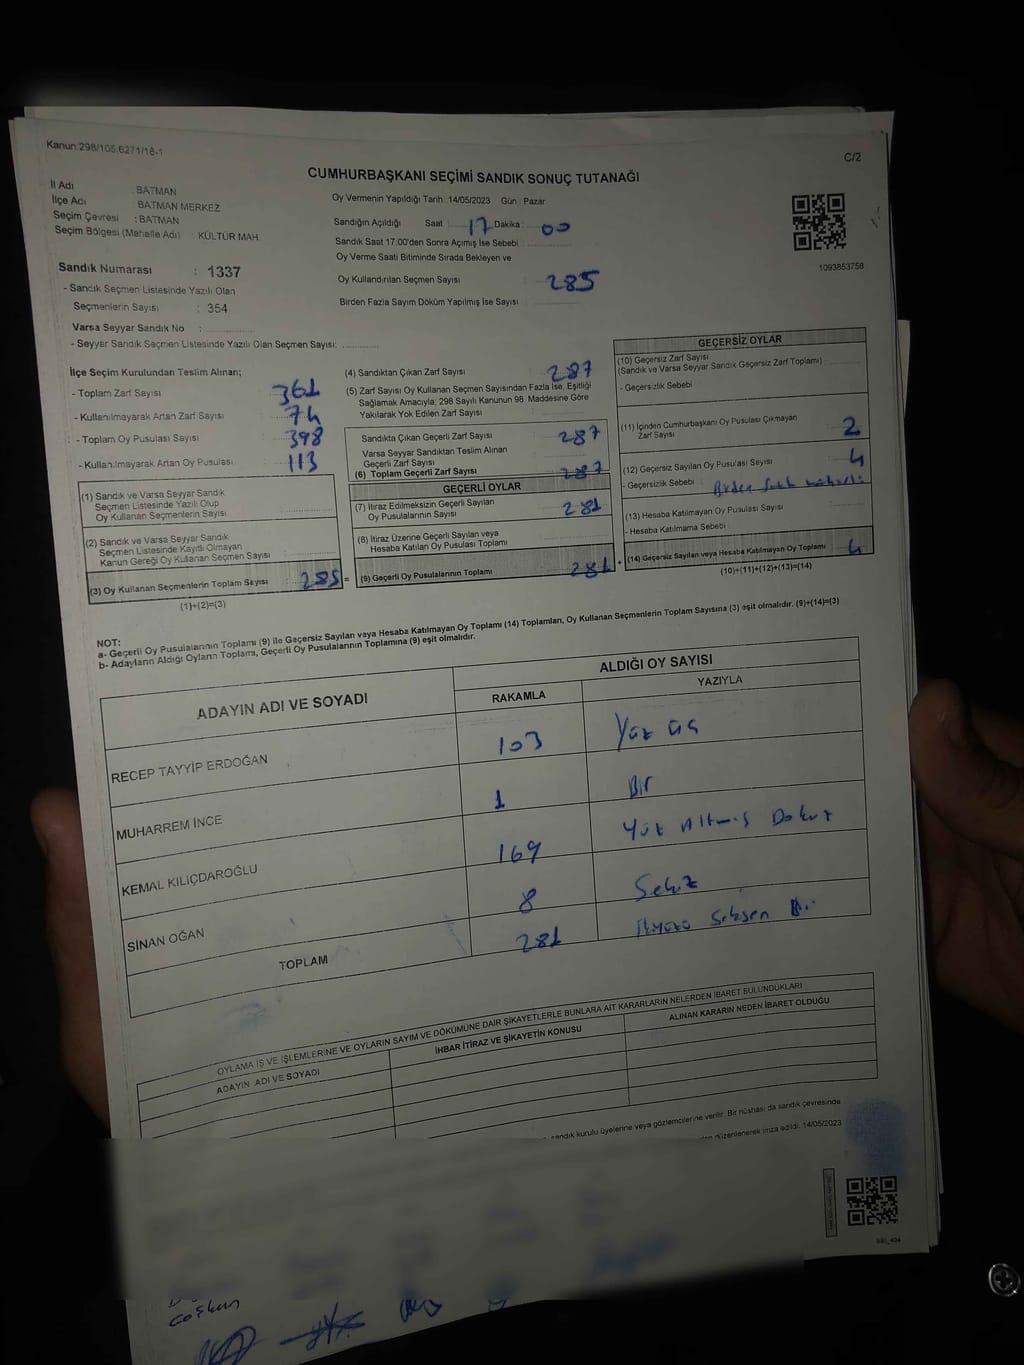 Kanun:298/105,6271/18-1
C/2
CUMHURBAŞKANI SEÇİMİ SANDIK SONUÇ TUTANAĞI
İl Adı : BATMAN
İlçe Adı : BATMAN MERKEZ
Seçim Çevresi : BATMAN
Seçim Bölgesi (Mahalle Adı) : KÜLTÜR MAH.
Sandık Numarası : 1337
- Sandık Seçmen Listesinde Yazılı Olan
Seçmenlerin Sayısı : 354
Varsa Seyyar Sandık No :
- Seyyar Sandık Seçmen Listesinde Yazılı Olan Seçmen Sayısı:
Oy Vermenin Yapıldığı Tarih :14/05/2023 Gün : Pazar
Sandığın Açıldığı Saat 17 Dakika : 00
Sandık Saat 17:00'den Sonra Açılmış İse Sebebi :
Oy Verme Saati Bitiminde Sırada Bekleyen ve
Oy Kullandırılan Seçmen Sayısı : 285
Birden Fazla Sayım Döküm Yapılmış İse Sayısı :
1093853758
İlçe Seçim Kurulundan Teslim Alınan;
- Toplam Zarf Sayısı : 361
- Kullanılmayarak Artan Zarf Sayısı : 74
- Toplam Oy Pusulası Sayısı : 398
- Kullanılmayarak Artan Oy Pusulası : 113
(1) Sandık ve Varsa Seyyar Sandık
Seçmen Listesinde Yazılı Olup
Oy Kullanan Seçmenlerin Sayısı :
(2) Sandık ve Varsa Seyyar Sandık
Seçmen Listesinde Kayıtlı Olmayan
Kanun Gereği Oy Kullanan Seçmen Sayısı
(3) Oy Kullanan Seçmenlerin Toplam Sayısı 285 =
(1)+(2)=(3)
(4) Sandıktan Çıkan Zarf Sayısı 287
(5) Zarf Sayısı Oy Kullanan Seçmen Sayısından Fazla İse, Eşitliği
Sağlamak Amacıyla; 298 Sayılı Kanunun 98. Maddesine Göre
Yakılarak Yok Edilen Zarf Sayısı :
Sandıkta Çıkan Geçerli Zarf Sayısı : 287
Varsa Seyyar Sandıktan Teslim Alınan
Geçerli Zarf Sayısı
(6) Toplam Geçerli Zarf Sayısı 287
GEÇERLİ OYLAR
(7) İtiraz Edilmeksizin Geçerli Sayılan
Oy Pusulalarının Sayısı : 281
(8) İtiraz Üzerine Geçerli Sayılan veya
Hesaba Katılan Oy Pusulası Toplamı :
(9) Geçerli Oy Pusulalarının Toplamı 281 +
GEÇERSİZ OYLAR
(10) Geçersiz Zarf Sayısı
(Sandık ve Varsa Seyyar Sandık Geçersiz Zarf Toplamı)
- Geçersizlik Sebebi :
(11) İçinden Cumhurbaşkanı Oy Pusulası Çıkmayan
Zarf Sayısı : 2
(12) Geçersiz Sayılan Oy Pusulası Sayısı 4
- Geçersizlik Sebebi : Birden
(13) Hesaba Katılmayan Oy Pusulası Sayısı
- Hesaba Katılmama Sebebi :
(14) Geçersiz Sayılan veya Hesaba Katılmayan Oy Toplamı 4
(10)+(11)+(12)+(13)=(14)
NOT:
a- Geçerli Oy Pusulalarının Toplamı (9) ile Geçersiz Sayılan veya Hesaba Katılmayan Oy Toplamı (14) Toplamları, Oy Kullanan Seçmenlerin Toplam Sayısına (3) eşit olmalıdır. (9)+(14)=(3)
b- Adayların Aldığı Oyların Toplamı, Geçerli Oy Pusulalarının Toplamına (9) eşit olmalıdır.
ADAYIN ADI VE SOYADI
ALDIĞI OY SAYISI
RAKAMLA YAZIYLA
RECEP TAYYİP ERDOĞAN 103 Yüz üç
MUHARREM İNCE 1 Bir
KEMAL KILIÇDAROĞLU 169 Yüz Altmış Dokuz
SİNAN OĞAN 8 Sekiz
TOPLAM 281 İkiyüz Seksen Bir
OYLAMA İŞ VE İŞLEMLERİNE VE OYLARIN SAYIM VE DÖKÜMÜNE DAİR ŞİKAYETLERLE BUNLARA AİT KARARLARIN NELERDEN İBARET BULUNDUKLARI
ADAYIN ADI VE SOYADI İHBAR İTİRAZ VE ŞİKAYETİN KONUSU ALINAN KARARIN NEDEN İBARET OLDUĞU
sandık kurulu üyelerine veya gözlemcilerine verilir. Bir nüshası da sandık çevresinde
düzenlenerek imza edildi. 14/05/2023
Coşkun